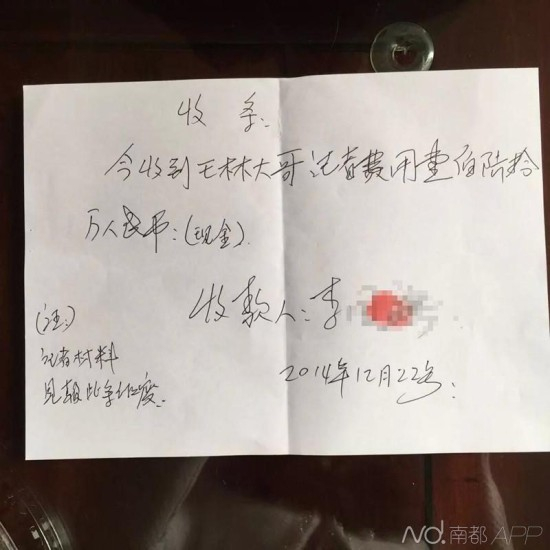 收条:
今收到王林大哥记者费用壹佰陆拾
万人民币:(现金).
收款人:李
2014年12月22号.
(注:)
记者材料
见报此条作废.
nd.南都APP